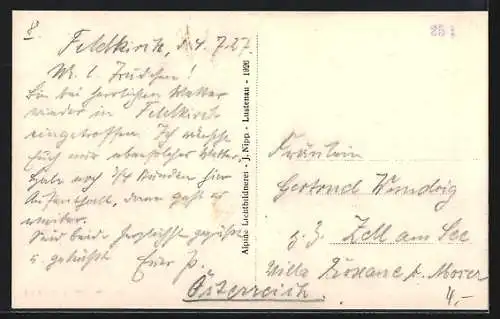 8.
251
Feldkirch, d. 4. 7. 27.
M. l. Trudchen!
Bin bei herrlichem Wetter
wieder in Feldkirch
eingetroffen. Ich wünsche
Euch nur ebensolches Wetter.
Habe noch 3/4 Stunden hier
Aufenthalt, dann geht es
weiter.
Seid beide herzlichst gegrüßt
u. geküsst Euer
Österreich.
Alpine Lichtbildnerei - J. Nipp - Lustenau - 1926
Fräulein
Gertrud
z. Z. Zell am See
Villa b. Moser
4,-